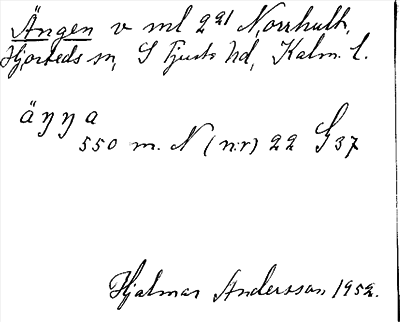 Ängen v ml 2²¹ Norrhult,
Hjorteds sn, S Tjusts hd, Kalm. l.
äŋŋa
550 m. N (n.r) 22 G 37
Hjalmar Andersson 1952.